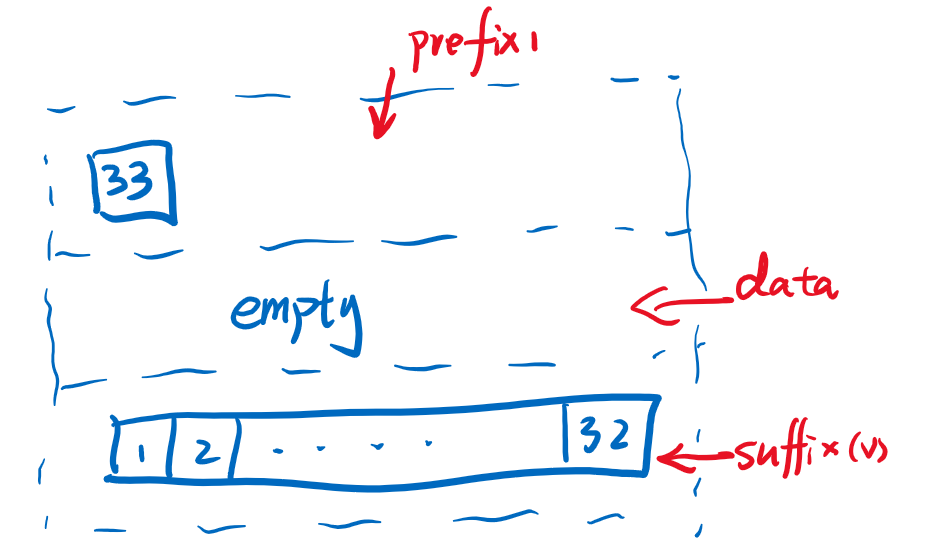 prefix1
33
empty
data
1 2 . . . . 32
suffix(v)